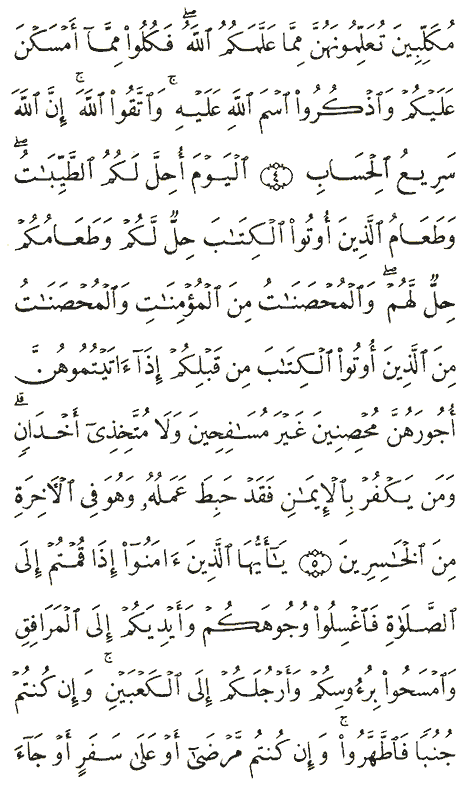 مُكَلِّبِينَ تُعَلِّمُونَهُنَّ مِمَّا عَلَّمَكُمُ ٱللَّهُۖ فَكُلُوا۟ مِمَّآ أَمۡسَكۡنَ
عَلَيۡكُمۡ وَٱذۡكُرُوا۟ ٱسۡمَ ٱللَّهِ عَلَيۡهِۚ وَٱتَّقُوا۟ ٱللَّهَۚ إِنَّ ٱللَّهَ
سَرِيعُ ٱلۡحِسَابِ ﴿٤﴾ ٱلۡيَوۡمَ أُحِلَّ لَكُمُ ٱلطَّيِّبَٰتُۖ
وَطَعَامُ ٱلَّذِينَ أُوتُوا۟ ٱلۡكِتَٰبَ حِلٌّ لَّكُمۡ وَطَعَامُكُمۡ
حِلٌّ لَّهُمۡۖ وَٱلۡمُحۡصَنَٰتُ مِنَ ٱلۡمُؤۡمِنَٰتِ وَٱلۡمُحۡصَنَٰتُ
مِنَ ٱلَّذِينَ أُوتُوا۟ ٱلۡكِتَٰبَ مِن قَبۡلِكُمۡ إِذَآ ءَاتَيۡتُمُوهُنَّ
أُجُورَهُنَّ مُحۡصِنِينَ غَيۡرَ مُسَٰفِحِينَ وَلَا مُتَّخِذِىٓ أَخۡدَانٍۗ
وَمَن يَكۡفُرۡ بِٱلۡإِيمَٰنِ فَقَدۡ حَبِطَ عَمَلُهُۥ وَهُوَ فِى ٱلۡأٓخِرَةِ
مِنَ ٱلۡخَٰسِرِينَ ﴿٥﴾ يَٰٓأَيُّهَا ٱلَّذِينَ ءَامَنُوٓا۟ إِذَا قُمۡتُمۡ إِلَى
ٱلصَّلَوٰةِ فَٱغۡسِلُوا۟ وُجُوهَكُمۡ وَأَيۡدِيَكُمۡ إِلَى ٱلۡمَرَافِقِ
وَٱمۡسَحُوا۟ بِرُءُوسِكُمۡ وَأَرۡجُلَكُمۡ إِلَى ٱلۡكَعۡبَيۡنِۚ وَإِن كُنتُمۡ
جُنُبًا فَٱطَّهَّرُوا۟ۚ وَإِن كُنتُم مَّرۡضَىٰٓ أَوۡ عَلَىٰ سَفَرٍ أَوۡ جَآءَ